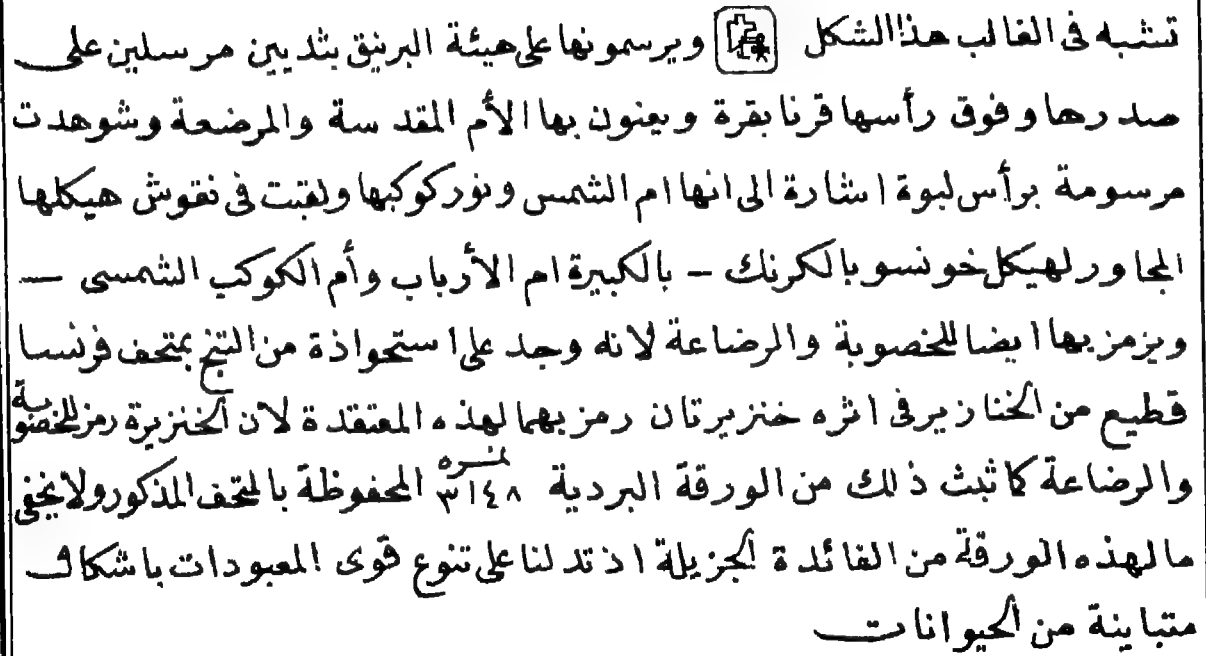 تشبه فى الغالب هذا الشكل ويرسمونها على هيئة البرنيق بثديين مرسلين على
صدرها وفوق رأسها قرنا بقرة ويعنون بها الأم المقدسة والمرضعة وشوهدت
مرسومة برأس لبوة اشارة الى انها ام الشمس ونور كوكبها ولقبت فى نقوش هيكلها
المجاور لهيكل خونسو بالكرنك – بالكبيرة ام الأرباب وأم الكوكب الشمسى –
ويزمز بها ايضا للخصوبة والرضاعة لانه وجد على استحواذة من التنج بمتحف فرنسا
قطيع من الخنازير فى اثره خنزيرتان رمز بهما لهذه المعتقدة لان الخنزيرة رمز للخصوبة
والرضاعة كما ثبث ذلك من الورقة البردية نمره ٣١٤٨ المحفوظة بالمتحف المذكور ولا يخفى
ما لهذه الورقة من الفائدة الجزيلة اذ تدلنا على تنوع قوى المعبودات باشكال
متباينة من الحيوانات